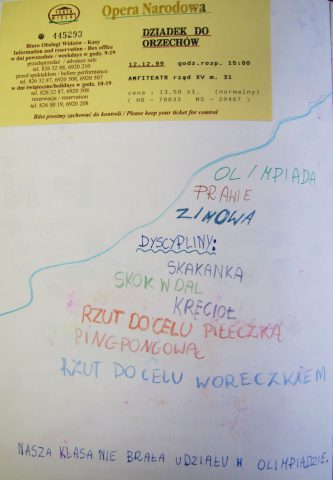 TEATR
WIELKI
Opera Narodowa
* 445293
DZIADEK DO
ORZECHÓW
Biuro Obsługi Widzów - Kasy
Information and reservation - Box office
w dni powszednie / weekdays in godz. 9-19
przedsprzedaż / advance sale
tel. 826 32 88, 6920 210
przed spektaklem / before performance
tel. 826 32 87, 6920 508, 6920 507
w dni świąteczne/holidays in godz. 10-19
tel. 826 32 87, 6920 508
rezerwacja / reservation
tel. 826 50 19, 6920 208
12.12.99 godz.rozp. 15:00
AMFITEATR rząd XV m. 31
cena : 13.50 zł. (normalny)
( NB - 78833 NS - 29467 )
Bilet prosimy zachować do kontroli / Please keep your ticket for control
OLIMPIADA
PRAWIE
ZIMOWA
DYSCYPLINY:
SKAKANKA
SKOK W DAL
KRĘCIOŁ
RZUT DO CELU PIŁECZKĄ
PINGPONGOWĄ
RZUT DO CELU WORECZKIEM
NASZA KLASA NIE BRAŁA UDZIAŁU W OLIMPIADZIE.